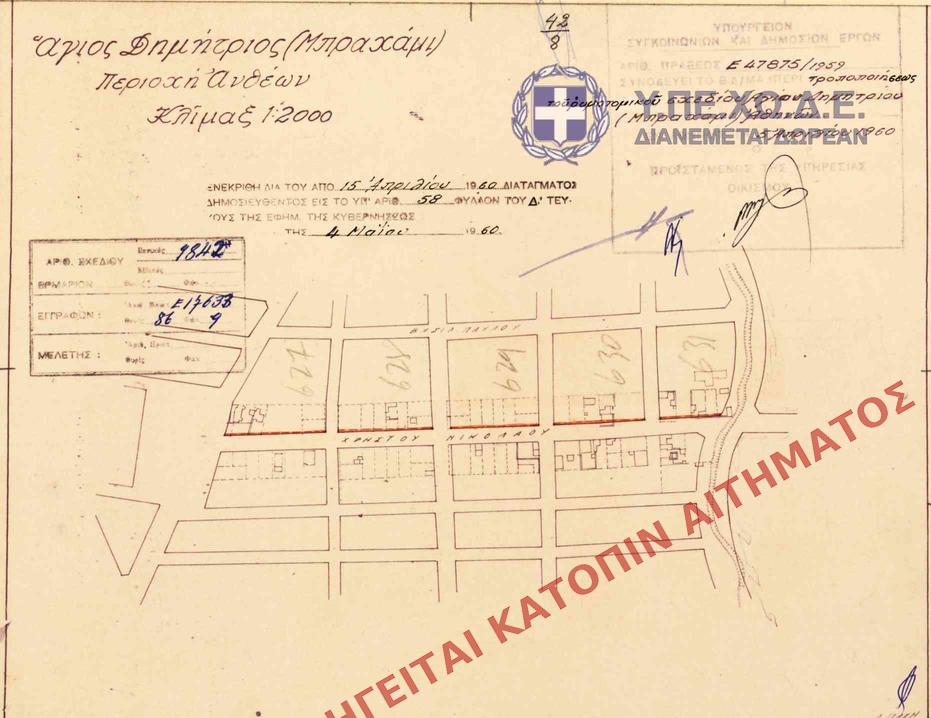 Ἅγιος Δημήτριος (Μπραχάμι)
Περιοχή Ἀνθέων
Κλῖμαξ 1:2000
42
8
ΥΠΟΥΡΓΕΙΟΝ
ΣΥΓΚΟΙΝΩΝΙΩΝ ΚΑΙ ΔΗΜΟΣΙΩΝ ΕΡΓΩΝ
ΑΡΙΘ. ΠΡΑΞΕΩΣ Ε 47875/1959
ΣΥΝΟΔΕΥΕΙ ΤΟ Β.Δ/ΜΑ ΠΕΡΙ τροποποιήσεως
τοῦ ρυμοτομικοῦ σχεδίου Ἁγίου Δημητρίου
(Μπραχάμι) Ἀθηνῶν
1960
Υ.ΠΕ.ΧΩ.Δ.Ε.
ΔΙΑΝΕΜΕΤΑΙ ΔΩΡΕΑΝ
Ο ΠΡΟΪΣΤΑΜΕΝΟΣ ΤΗΣ ΥΠΗΡΕΣΙΑΣ
ΟΙΚΙΣΜΟΥ
ΕΝΕΚΡΙΘΗ ΔΙΑ ΤΟΥ ΑΠΟ 15 Ἀπριλίου 1960 ΔΙΑΤΑΓΜΑΤΟΣ
ΔΗΜΟΣΙΕΥΘΕΝΤΟΣ ΕΙΣ ΤΟ ΥΠ' ΑΡΙΘ. 58 ΦΥΛΛΟΝ ΤΟΥ Δ.' ΤΕΥ-
ΧΟΥΣ ΤΗΣ ΕΦΗΜ. ΤΗΣ ΚΥΒΕΡΝΗΣΕΩΣ
ΤΗΣ 4 Μαΐου 1960.
ΑΡΙΘ. ΣΧΕΔΙΟΥ Γενικός 9842
Εἰδικός
ΕΡΜΑΡΙΟΝ
ΕΓΓΡΑΦΩΝ : Ε17633
86 9
ΜΕΛΕΤΗΣ : Ἀριθ. Πρωτ.
Θυρίς Φακ.
ΒΑΣΙΛ. ΠΑΥΛΟΥ
627 628 629 630 631
ΧΡΗΣΤΟΥ ΝΙΚΟΛΑΟΥ
ΗΓΕΙΤΑΙ ΚΑΤΟΠΙΝ ΑΙΤΗΜΑΤΟΣ